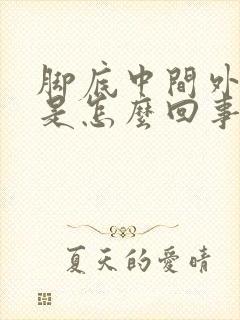 脚底中間外
是怎麼回事
夏天的愛晴